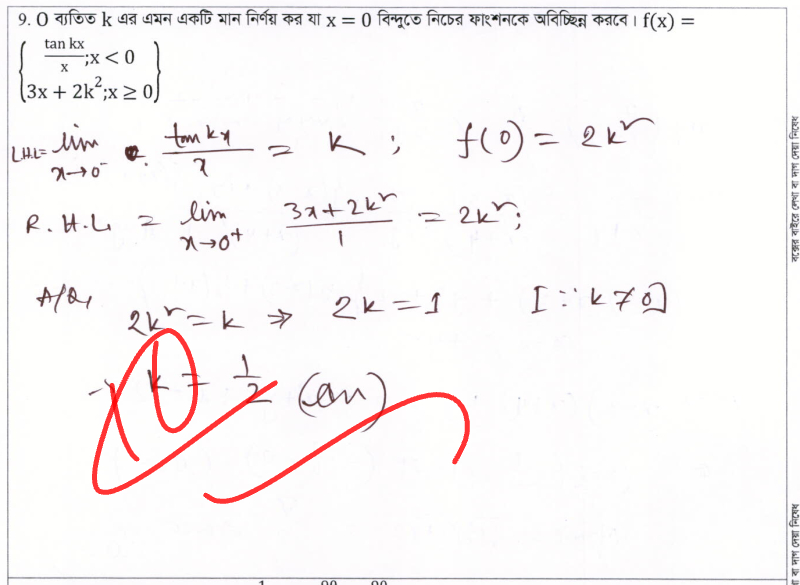 9. O ব্যতিত k এর এমন একটি মান নির্ণয় কর যা x = 0 বিন্দুতে নিচের ফাংশনকে অবিচ্ছিন্ন করবে। f(x) =
{ tan kx / x ;x < 0
3x + 2k²;x ≥ 0 }
L.H.L= lim x→0⁻ tan kx / x = k ; f(0) = 2k²
R.H.L = lim x→0⁺ 3x+2k² / 1 = 2k²;
A/Q, 2k² = k ⇒ 2k = 1 [∵ k ≠ 0]
→ k = 1/2 (an)
10
বক্সের বাইরে লেখা বা দাগ দেয়া নিষেধ
বা দাগ দেয়া নিষেধ